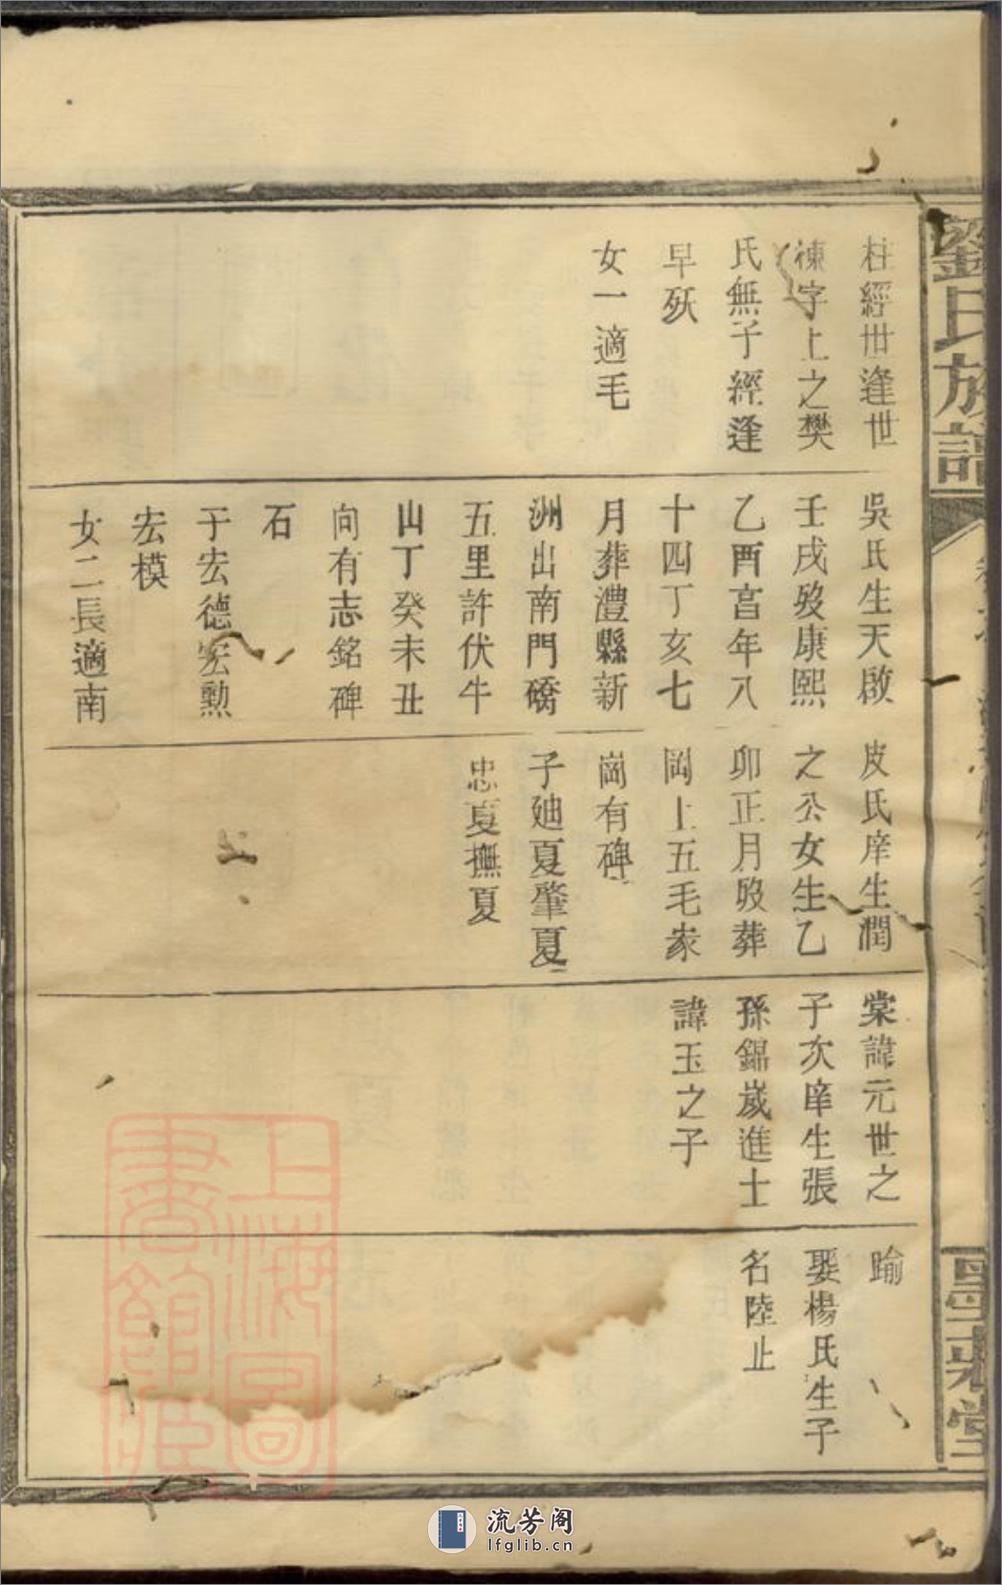 劉氏族譜
柱經世逢世
棟字上之樊
氏無子經逢
早殀
女一適毛
吳氏生天啟
壬戌歿康熙
乙酉富年八
十四丁亥七
月葬澧縣新
洲出南門礄
五里許伏牛
山丁癸未丑
向有志銘碑
石
子宏德宏勲
宏模
女二長適南
皮氏庠生潤
之公女生乙
卯正月歿葬
岡上五毛家
崗有碑
子廸夏肇夏
忠夏撫夏
棠諱元世之
子次庠生張
孫錦嵗進士
諱玉之子
踰
娶楊氏生子
名陸止
墨莊堂
上海圖書館藏
流芳阁
lfglib.cn